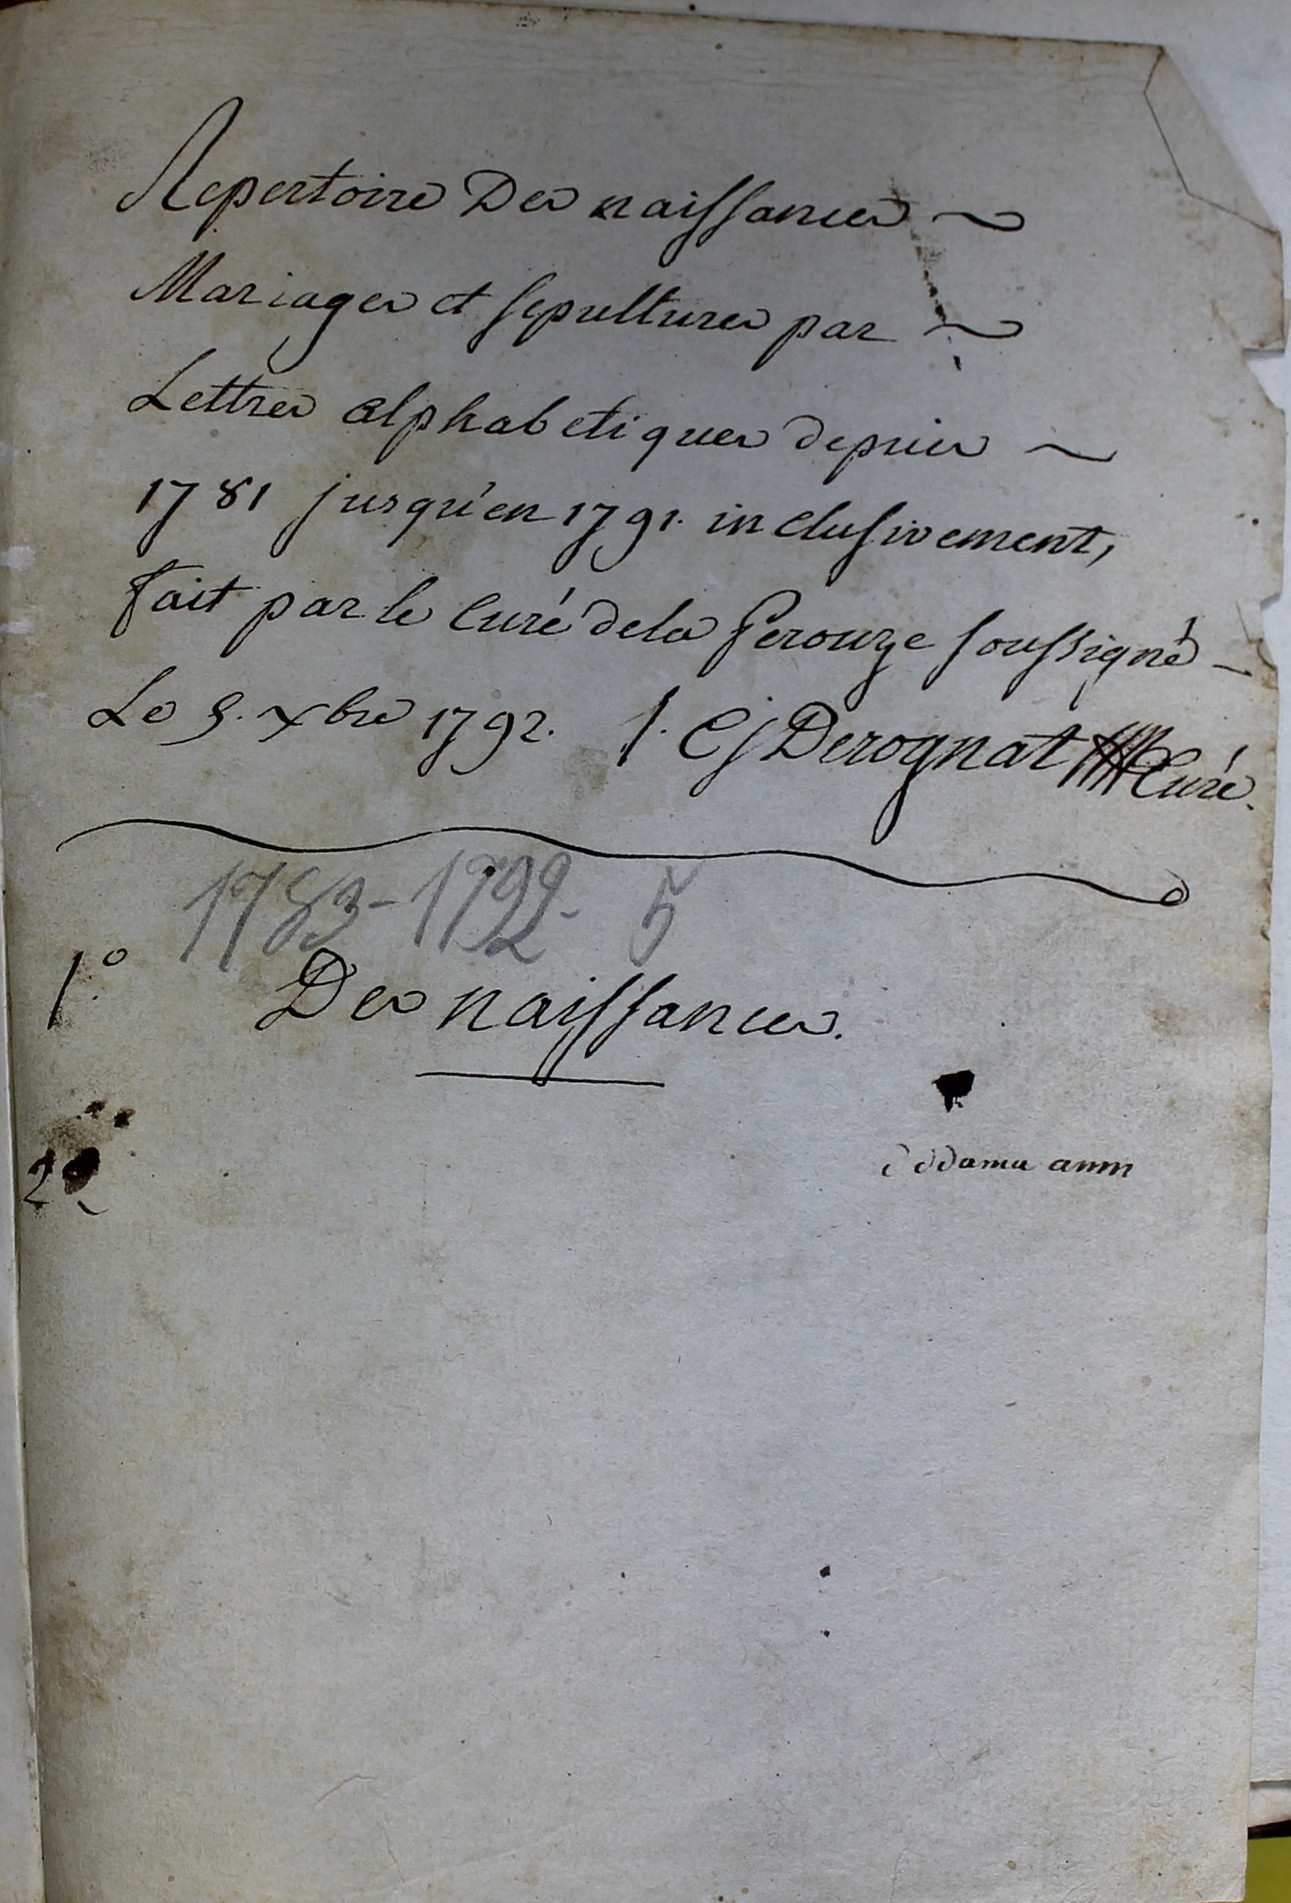 Repertoire Des naissances ~
Mariages et sepultures par ~
Lettres alphabetiques depuis ~
1781 jusqu'en 1791. inclusivement,
fait par le Curé de la Perouze soussigné –
Le 5. xbre 1792. J. CJ Derognat Curé.
1783-1792- 5
1.° Des naissances.